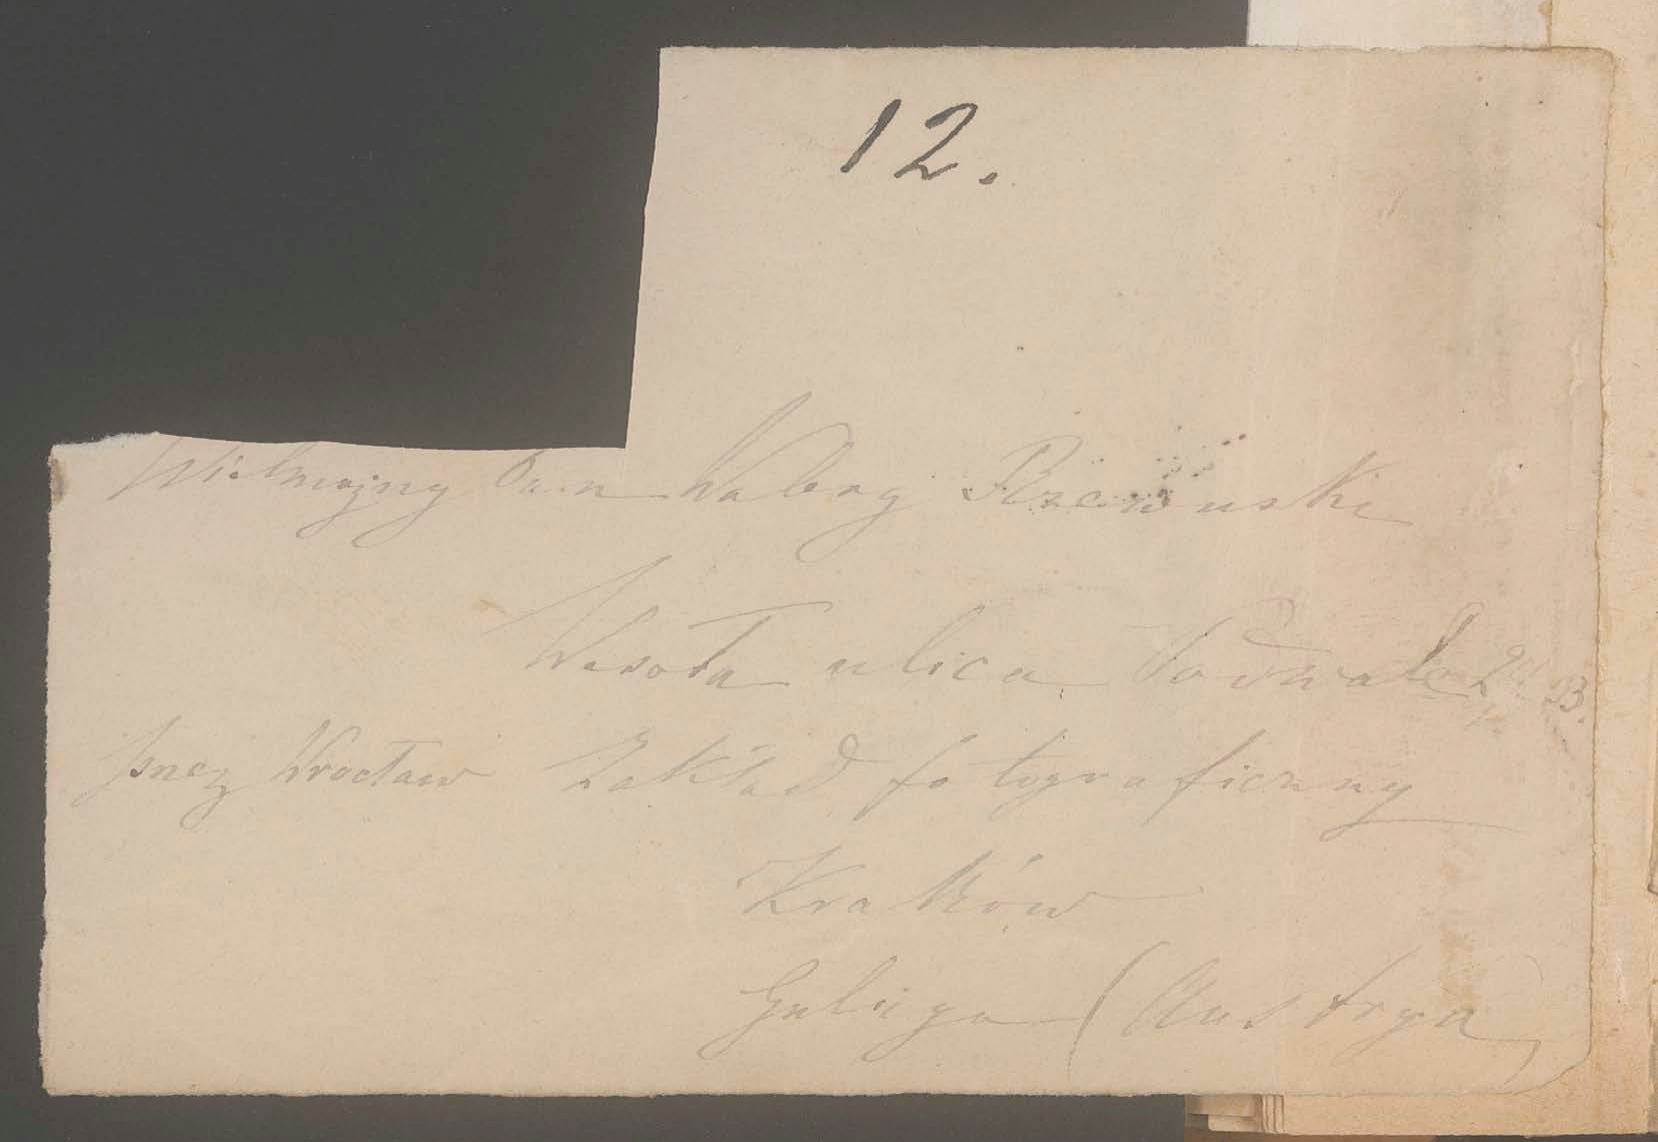 12.
Wielmożny Pan Walery Rzewuski
Wesoła ulica Podwale
przez Wrocław Zakład fotograficzny
Kraków
Galicya (Austrya)